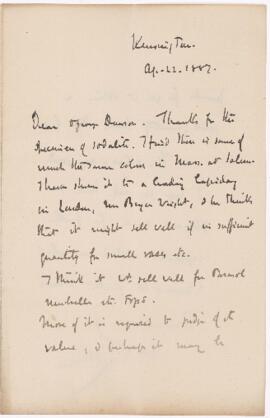 Kensington.
Ap. 22. 1887.
Dear Dawson. Thanks for the
specimen of sodalite. I find there is some of
much the same colour in Mass. at Salem.
I have shown it to a leading Lapidary
in London, Mr Bryce Wright, & he thinks
that it might sell well if in sufficient
quantity for small vases etc.
I think it wd. sell well for Parasol
Umbrella etc. tops.
More of it is required to judge of its
value, & perhaps it may be